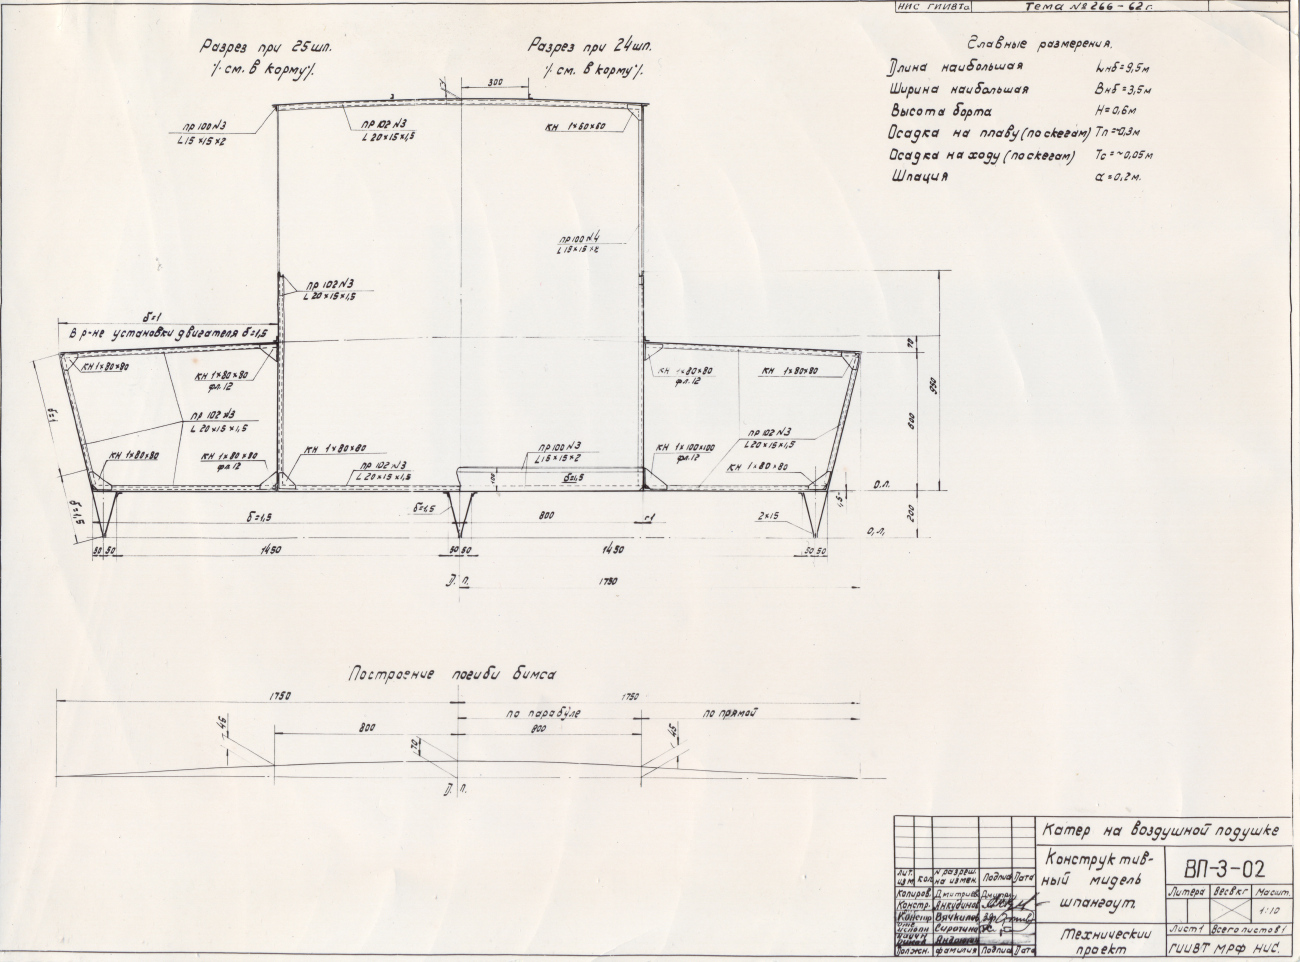 НИС ГИИВТа
Тема № 266-62 г.
Разрез при 25 шп.
/см. в корму/.
Разрез при 24 шп.
/см. в корму/.
Главные размерения.
Длина наибольшая Lнб=9,5м
Ширина наибольшая Внб=3,5м
Высота борта Н=0,6м
Осадка на плаву (по скегам) Тп=~0,3м
Осадка на ходу (по скегам) Тс=~0,05м
Шпация а=0,2м.
300
пр 100 №3
L 15×15×2
пр 102 №3
L 20×15×1,5
КН 1×60×60
пр 100 №4
пр 102 №3
L 20×15×1,5
δ=1
В р-не установки двигателя δ=1,5
КН 1×80×80
КН 1×80×80
фл. 12
КН 1×80×80
фл. 12
КН 1×80×80
70
950
600
δ=1
пр 102 №3
L 20×15×1,5
КН 1×80×80
КН 1×80×80
фл 12
КН 1×80×80
пр 102 №3
L 20×15×1,5
пр 100 №3
L 15×15×2
δ=1,5
КН 1×100×100
фл. 12
пр 102 №3
L 20×15×1,5
КН 1×80×80
О.л.
δ=1,5
δ=1,5
δ=1,5
800
2×15
200
О.л.
50 50
1450
50 50
1450
50 50
Д. п.
1750
Построение погиби бимса
1750
1750
по параболе
по прямой
45
800
70
800
45
Д. п.
Катер на воздушной подушке
Конструктив-
ный мидель
шпангоут.
ВП-3-02
Литера Вес в кг Масшт.
1:10
Лист 1 Всего листов 1
Технический
проект
ГИИВТ МРФ НИС.
Лит. изм. кол. № разреш. на измен. Подпись Дата
Копиров. Дмитриев
Констр. Анкудинов
Констр Вячкилов
исполн Сиротина
Должн. фамилия Подпись Дата